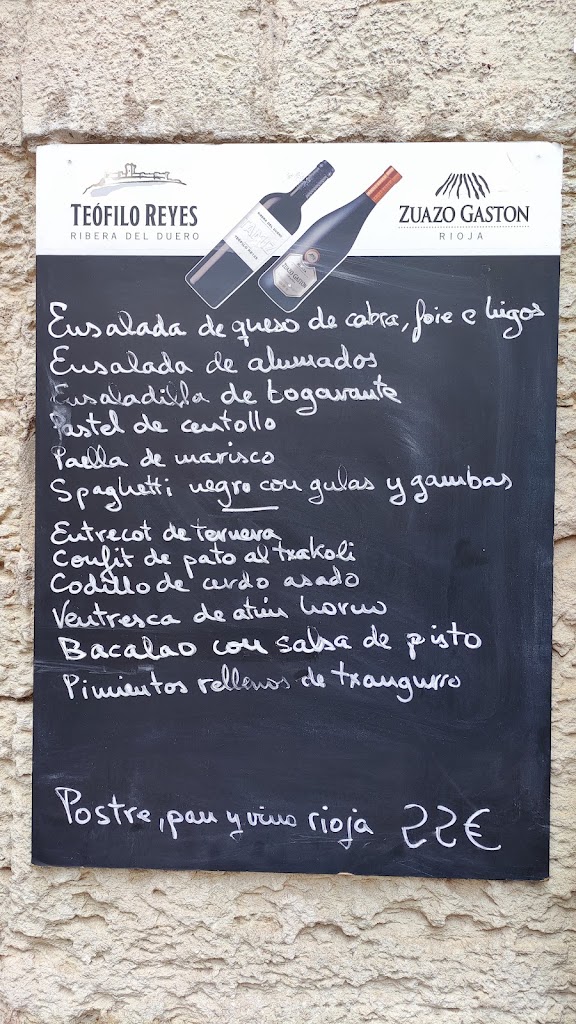 TEÓFILO REYES
RIBERA DEL DUERO
ZUAZO GASTON
RIOJA
Ensalada de queso de cabra, foie e higos
Ensalada de ahumados
Ensaladilla de bogavante
Pastel de centollo
Paella de marisco
Spaghetti negro con gulas y gambas
Entrecot de ternera
Confit de pato al txakoli
Codillo de cerdo asado
Ventresca de atún horno
Bacalao con salsa de pisto
Pimientos rellenos de txangurro
Postre, pan y vino rioja 22€